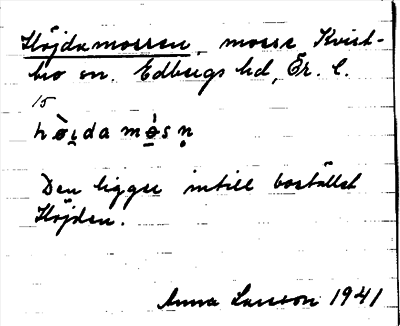 Höjdamossen, mosse, Kvist-
bro sn. Edbergs hd, Ör. l.
15
hö̀i̯da mò̱sn̥
Den ligger intill bostället
Höjden.
Anna Larsson 1941